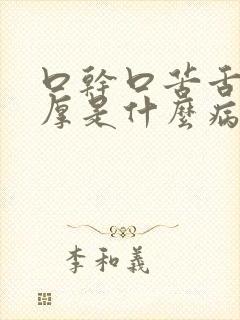 口幹口苦舌
厚是什麼病
李和義